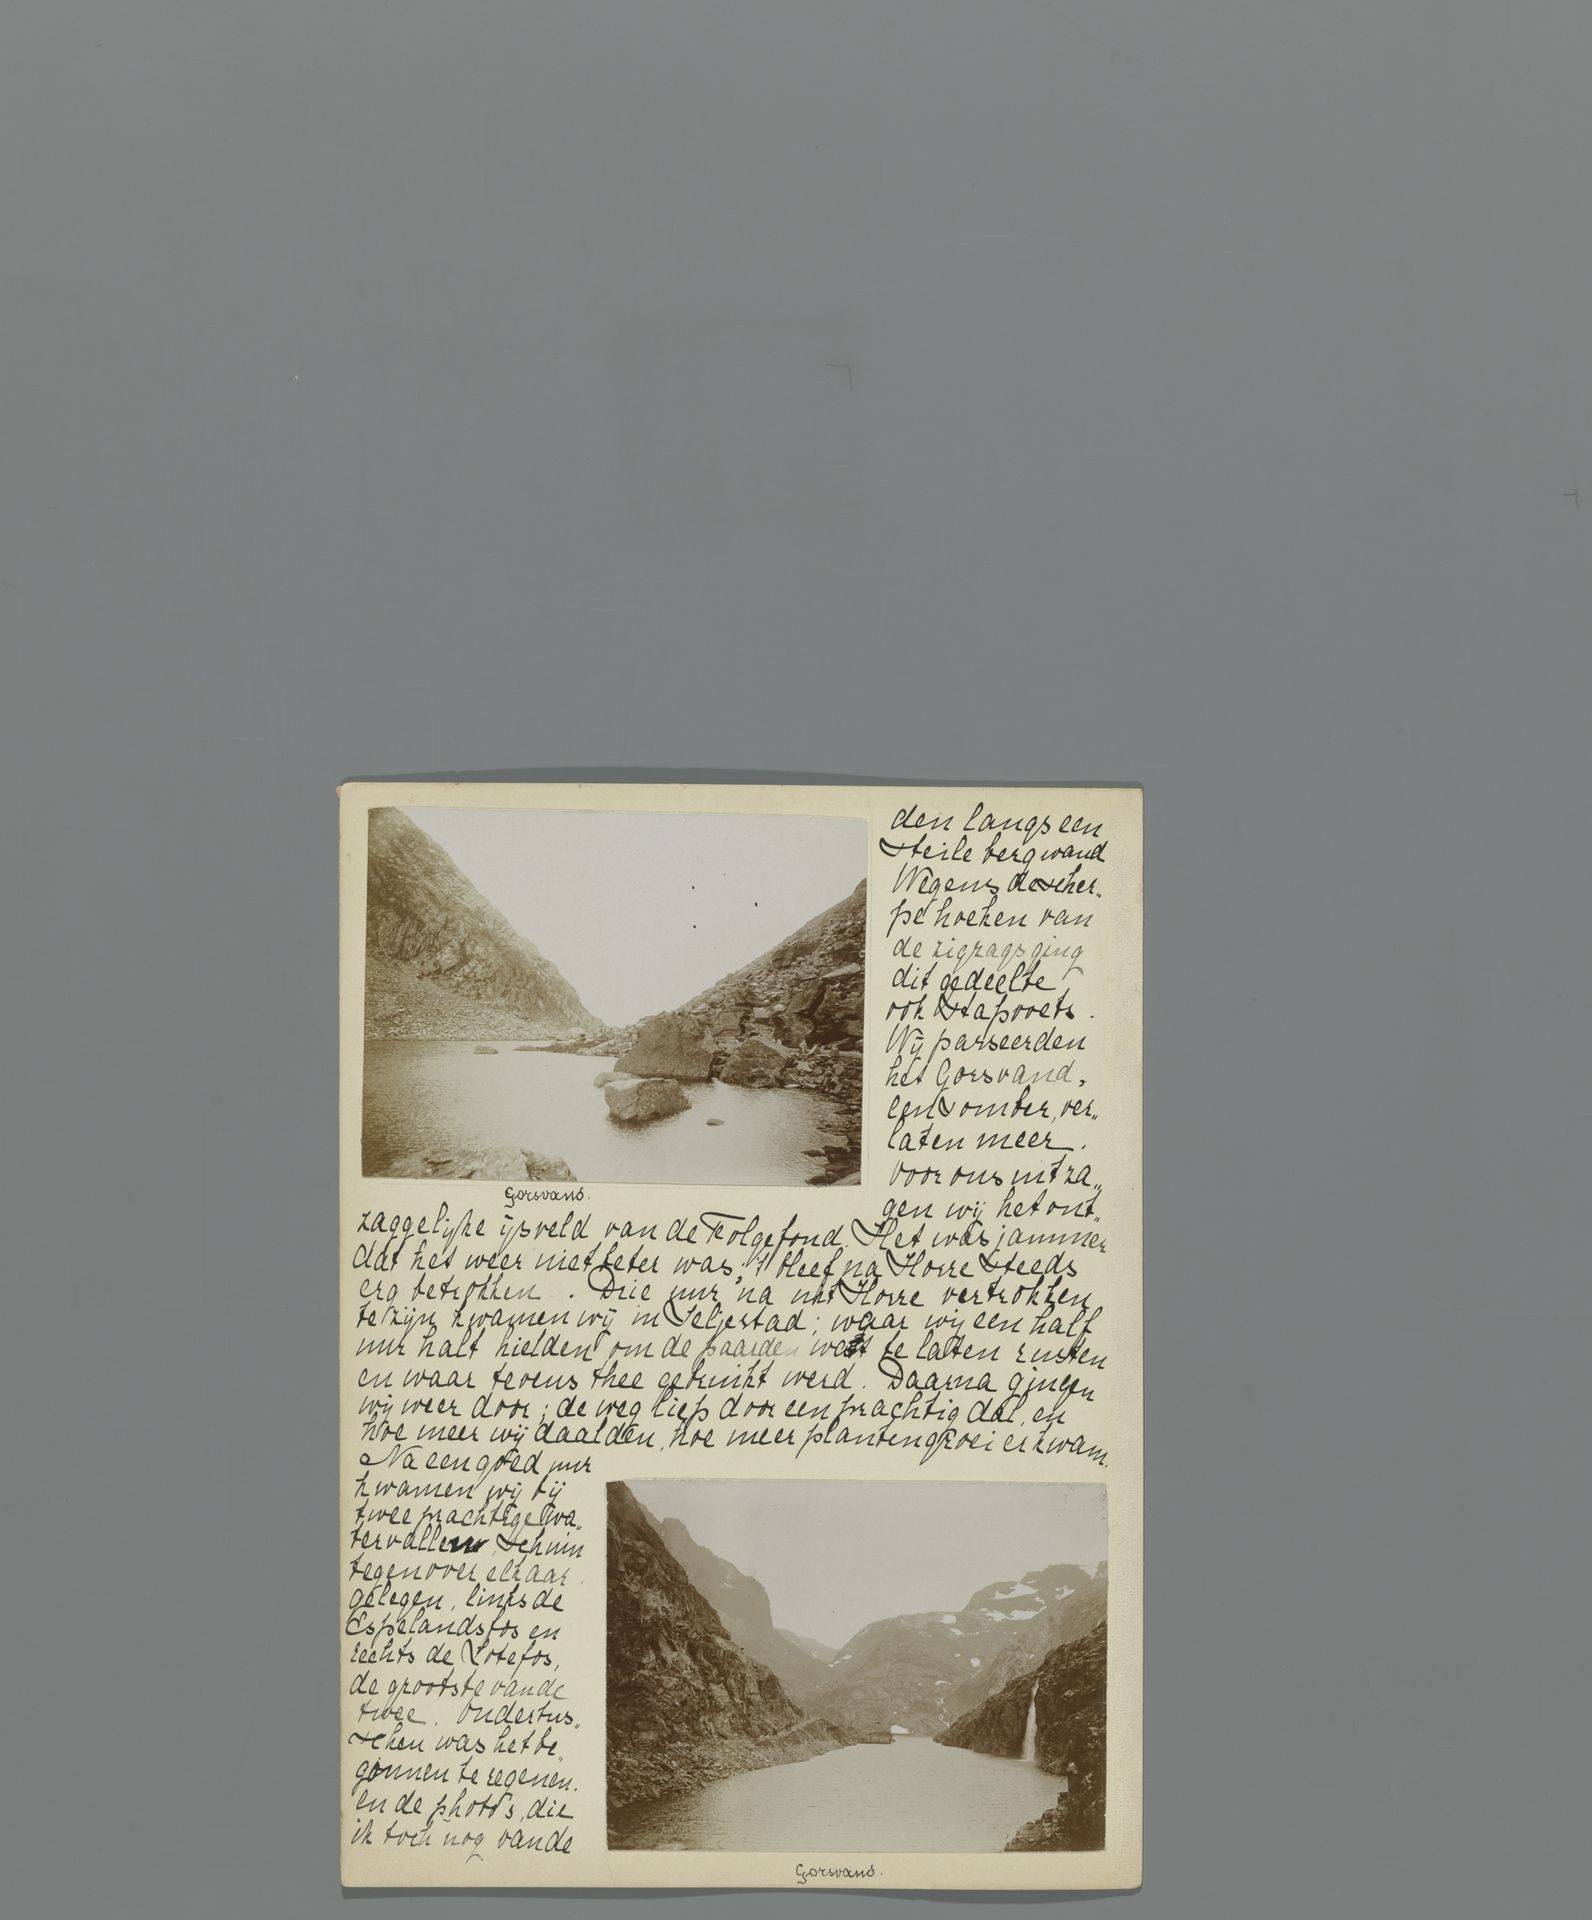 den langs een
steile bergwand
Wegens de scher-
pe hoeken van
de zigzags ging
dit gedeelte
ook stapvoets.
Wij passeerden
het Gorsvand,
een somber, ver„
laten meer.
Voor ons uit za„
gen wij het ont„
Gorsvand.
zaggelijke ijsveld van de Folgefond. Het was jammer
dat het weer niet beter was; 't bleef na Horre steeds
erg betrokken. Drie uur na uit Horre vertrokken
te zijn kwamen wij in Seljestad; waar wij een half
uur halt hielden om de paarden wat te laten rusten
en waar tevens thee gebruikt werd. Daarna gingen
wij weer door; de weg liep door een prachtig dal, en
hoe meer wij daalden, hoe meer plantengroei er kwam.
Na een goed uur
kwamen wij bij
twee prachtige wa„
tervallen, schuin
tegenover elkaar
gelegen, links de
Espelandsfos en
rechts de Lotefos,
de grootste van de
twee. Ondertus„
schen was het be„
gonnen te regenen.
en de photo's, die
ik toch nog van de
Gorsvand.